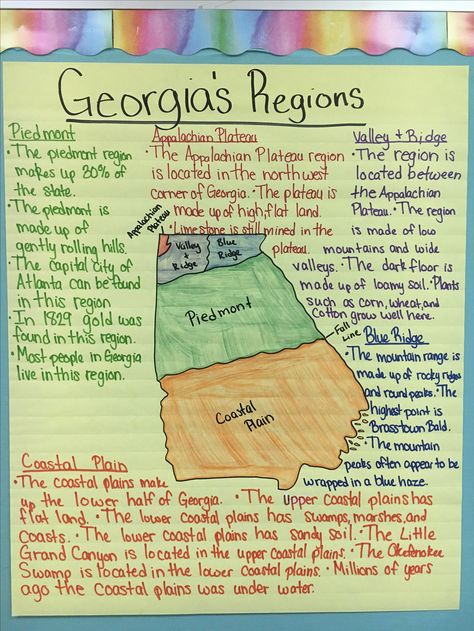 Georgia's Regions
Piedmont
• The piedmont region
makes up 30% of
the state.
• The piedmont is
made up of
gently rolling hills.
• The capital city of
Atlanta can be found
in this region
• In 1829 gold was
found in this region.
• Most people in Georgia
live in this region.
Appalachian Plateau
• The Appalachian Plateau region
is located in the northwest
corner of Georgia. • The plateau is
made up of high, flat land.
• Limestone is still mined in the
plateau.
Valley + Ridge
• The region is
located between
the Appalachian
Plateau. • The region
is made of low
mountains and wide
valleys. • The dark floor is
made up of loamy soil. • Plants
such as corn, wheat, and
cotton grow well here.
Appalachian
Plateau
Valley
+
Ridge
Blue
Ridge
Piedmont
Fall
Line
Coastal
Plain
Blue Ridge
• The mountain range is
made up of rocky ridges
and round peaks. • The
highest point is
Brasstown Bald.
• The mountain
peaks often appear to be
wrapped in a blue haze.
Coastal Plain
• The coastal plains make
up the lower half of Georgia. • The upper coastal plains has
flat land. • The lower coastal plains has swamps, marshes, and
coasts. • The lower coastal plains has sandy soil. • The Little
Grand Canyon is located in the upper coastal plains. • The Okefenokee
Swamp is located in the lower coastal plains. • Millions of years
ago the coastal plains was under water.